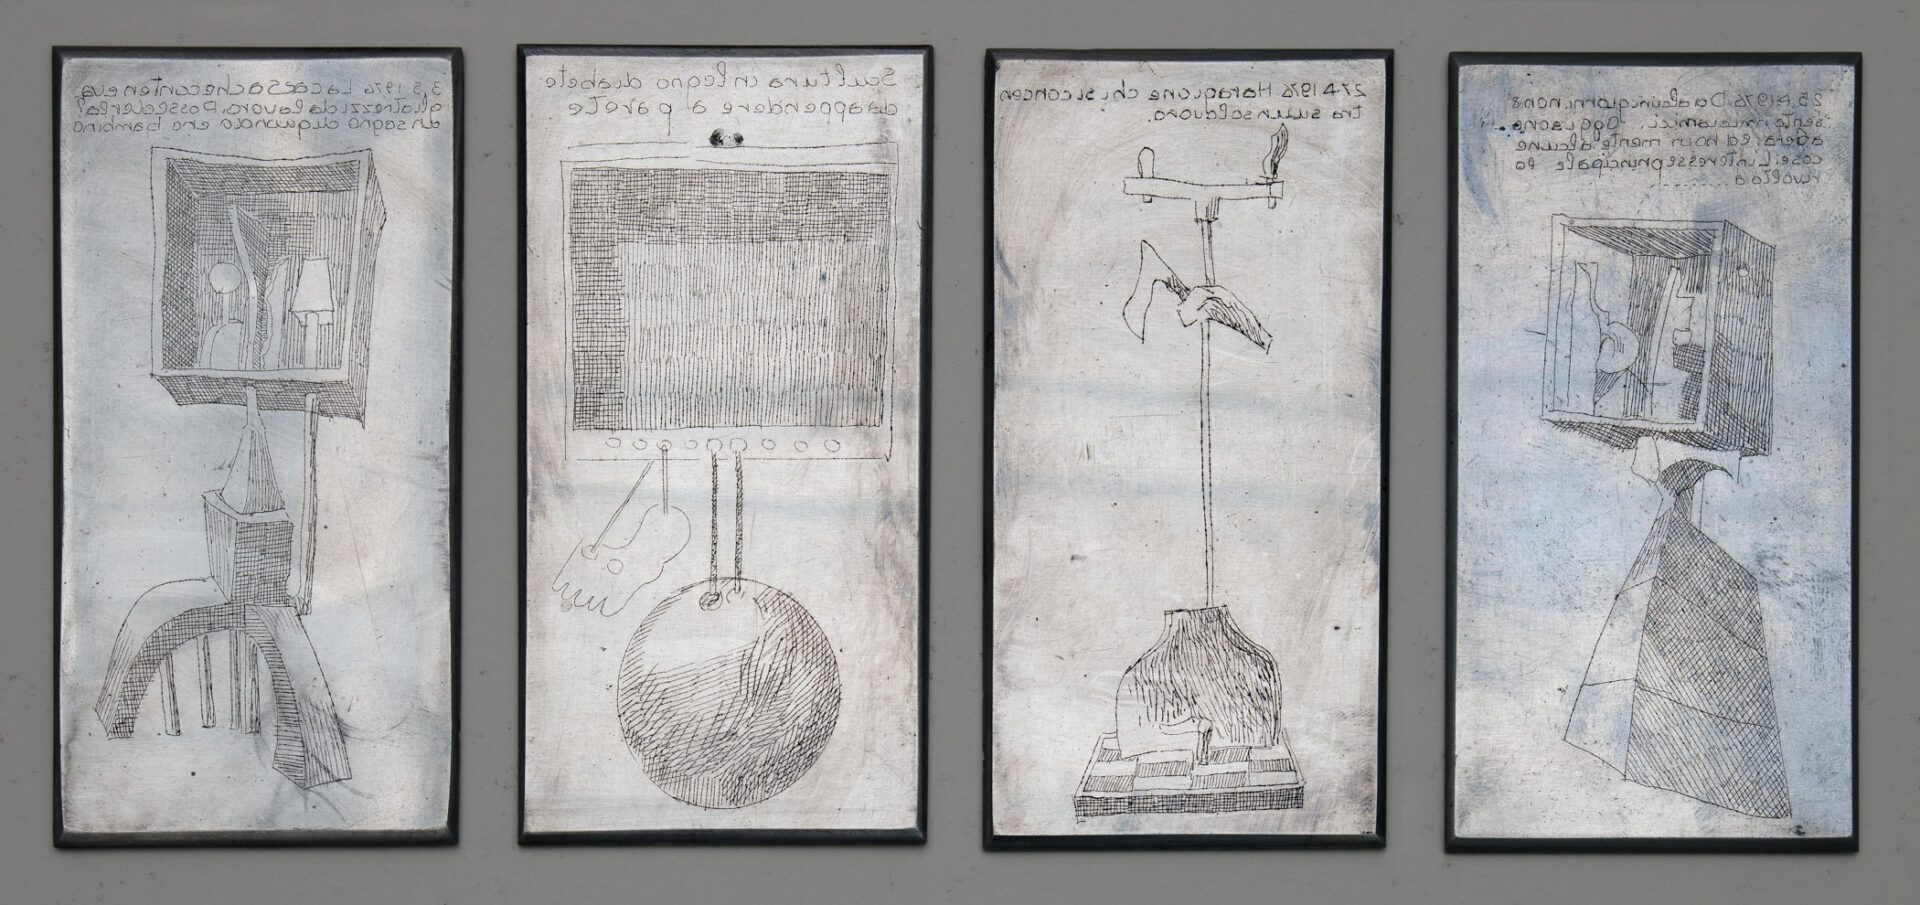 3.5.1976 La casa che conteneva
gli attrezzi da lavoro. Possederla?
un sogno di quando ero bambino
Scultura in legno di abete
da appendere a parete
27.4.1976 Ha ragione chi si concen
tra su un sol lavoro.
25.4.1976 Da alcuni giorni non
sento i miei amici. Oggi
ed ho in mente alcune
cose: L'interesse principale lo
rivolto a ..........